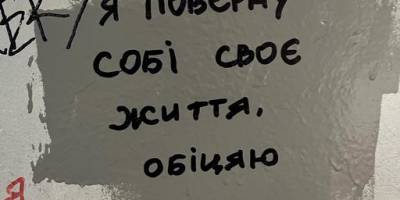 Я ПОВЕРНУ
СОБІ СВОЄ
ЖИТТЯ,
ОБІЦЯЮ